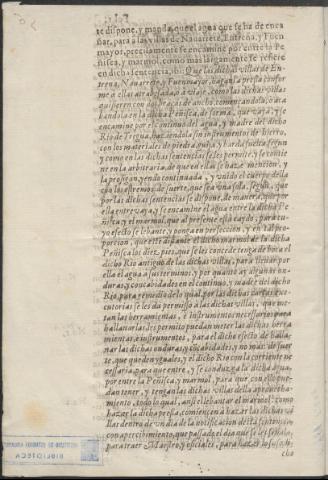 te dispone, y manda, que el agua que se ha de enca
ñar, para a las villas de Nauarrete, Entrena, y Fuen
mayor, precisamente se encamine por entre la Pe
ñisca, y marmol, como mas largamente se refiere
en dicha sentencia, ibi: Que las dichas villas de En-
trena, Nauarrete, y Fuenmayor, hagan la presa
me a ellas atrabesando a viaje, como las dichas villas
quisieren con dos braças de ancho, començandola, y tra
bandola en la dicha Peñisca, de forma, que vaya, y se
encamine por el continuo del agua, y madre del dicho
Rio de Iregua, haziendola sin instrumento de hierro,
con los materiales de piedra guija, y barda suelta segun
y como en las dichas sentencias se les permite, y se contie
ne en la arbitraria, de que en ellas se haze mencion, y
la prosigan, yendo continuada, y vnido el cuerpo della
con los estremos de suerte, que sea vna sola, segun, que
por las dichas sentencias se dispone, de manera, que por
ella entre vaya, y se encamine el agua entre la dicha Pe
ñisca, y el marmol, que al presente està caydo, para cu
yo efecto se lebante, y ponga en perfeccion, y en tal pro-
porcion, que este distante el dicho marmol de la dicha
Peñisca los diez pies, que se les concede tenga de boca el
dicho Rio antiguo de las dichas villas, para lleuar por
ella el agua à sus terminos, y por quanto ay algunas on-
duras, y concabidades en el continuo, y madre del dicho
Rio, para remedio de lo qual, por las dichas cartas exe-
cutorias se les da permisso à las dichas villas, que me-
tan las herramientas, è instrumentos necessarios para
hallanarlas: les permito puedan meter las dichas herra
mientas, è instrumentos, para el dicho efecto de halla-
nar las dichas onduras, y concabidades, y no mas: de suer
te, que queden yguales, y el dicho Rio con la corriente ne
cessaria, para que entre, y se conduzga la dicha agua,
por entre la Peñisca, y marmol, para que con ello pue-
dan tener, y tengan las dichas villas della aprouecha-
miento, todo lo qual, assi el lebantar el marmol, como
hazer la dicha presa, comiencen à hazer las dichas vi
llas dentro de vn dia de la notificacion desta sentencia,
con apercibimiento, que passado el dia que se les señala,
para traer Maestro, y oficiales, para hazer lo suso di-
cho
BIBLIOTECA